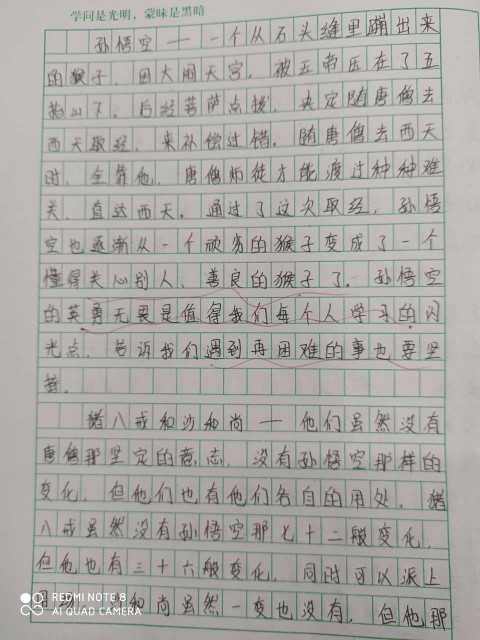 学问是光明，蒙昧是黑暗
孙悟空——一个从石头缝里蹦出来
的猴子，因大闹天宫，被压在了五
指山下。后经菩萨点拨，决定随唐僧去
西天取经，来补偿过错。随唐僧去西天
时，全靠他，唐僧师徒才能渡过种种难
关，直达西天。通过了这次取经，孙悟
空也逐渐从一个顽劣的猴子变成了一个
懂得关心别人、善良的猴子了。孙悟空
的英勇无畏是值得我们每个人学习的闪
光点，告诉我们遇到再困难的事也要坚
持。
猪八戒和沙和尚——他们虽然没有
唐僧那坚定的意志，没有孙悟空那样的
变化，但他们也有他们各自的用处。猪
八戒虽然没有孙悟空那七十二般变化，
但他也有三十六般变化，同时可以派上
和尚虽然一变也没有，但他那
REDMI NOTE 8
AI QUAD CAMERA